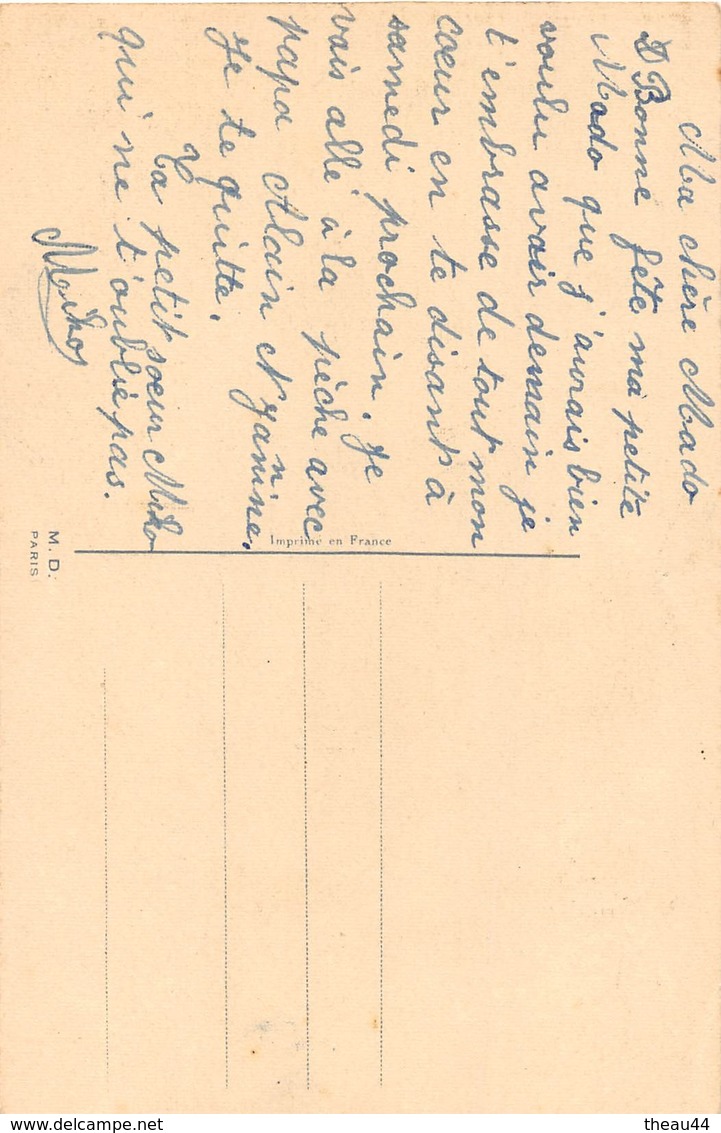 Ma chère Mado
Bonne fête ma petite
Mado que j'aurais bien
voulu avoir demain je
t'embrasse de tout mon
coeur en te disant à
samedi prochain. Je
vais allé à la pèche avec
papa Alain et Janine.
Je te quitte.
Ta petit soeur
qui ne t'oublie pas.
Imprimé en France
M. D.
PARIS
theau44